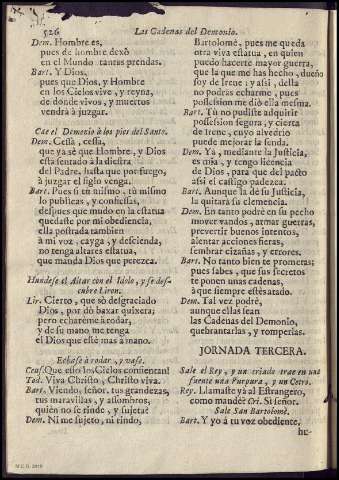 526
Las Cadenas del Demonio.
Dem. Hombre es,
pues de hombre dexò
en el Mundo tantas prendas.
Bart. Y Dios,
pues que Dios, y Hombre
en los Cielos vive, y reyna,
de donde vivos, y muertos
vendrà à juzgar.
Cae el Demonio à los pies del Santo.
Dem. Cessa, cessa,
que yà sè que Hombre, y Dios
està sentado à la diestra
del Padre, hasta que por fuego,
à juzgar el siglo venga.
Bart. Pues si tù mismo, tù mismo
lo publicas, y confiessas,
despues que mudo en la estatua
quedaste por mi obediencia,
ella postrada tambien
à mi voz, cayga, y descienda,
no tenga altares estatua,
que manda Dios que perezca.
Hundese el Altar con el Idolo, y se des-
cubre Liron.
Lir. Cierto, que sò desgraciado
Dios, por dò baxar quixera;
pero echarème à rodar,
y de su mano me tenga
el Dios que està mas à mano.
Echase à rodar, y vase.
Ceus. Que esto los Cielos consientan!
Tod. Viva Christo, Christo viva.
Bart. Viendo, señor, tus grandezas,
tus maravillas, y assombros,
quièn no se rinde, y sujeta?
Dem. Ni me sujeto, ni rindo,
Bartolomè, pues me queda
otra viva estatua, en quien
puedo hacerte mayor guerra,
que la que me has hecho, dueño
soy de Irene; y assi, della
no podràs echarme, pues
possession me diò ella mesma.
Bart. Tù no pudiste adquirir
possession segura, y cierta
de Irene, cuyo alvedrio
puede mejorar la senda.
Dem. Yà, mediante la Justicia,
es mia, y tengo licencia
de Dios, para que del pacto
assi el castigo padezca.
Bart. Aunque la dè su Justicia,
la quitarà su clemencia.
Dem. En tanto podrè en su pecho
mover vandos, armar guerras,
prevertir buenos intentos,
alentar acciones fieras,
sembrar cizañas, y errores.
Bart. No tanto bien te prometas;
pues sabes, que sus secretos
te ponen unas cadenas,
à que siempre estès atado.
Dem. Tal vez podrè,
aunque ellas sean
las Cadenas del Demonio,
quebrantarlas, y romperlas.
JORNADA TERCERA.
Sale el Rey, y un criado trae en una
fuente una Purpura, y un Cetro.
Rey. Llamaste yà al Estrangero,
como mandè? Cri. Si señor.
Sale San Bartolomè.
Bart. Y yo à tu voz obediente.
hu-